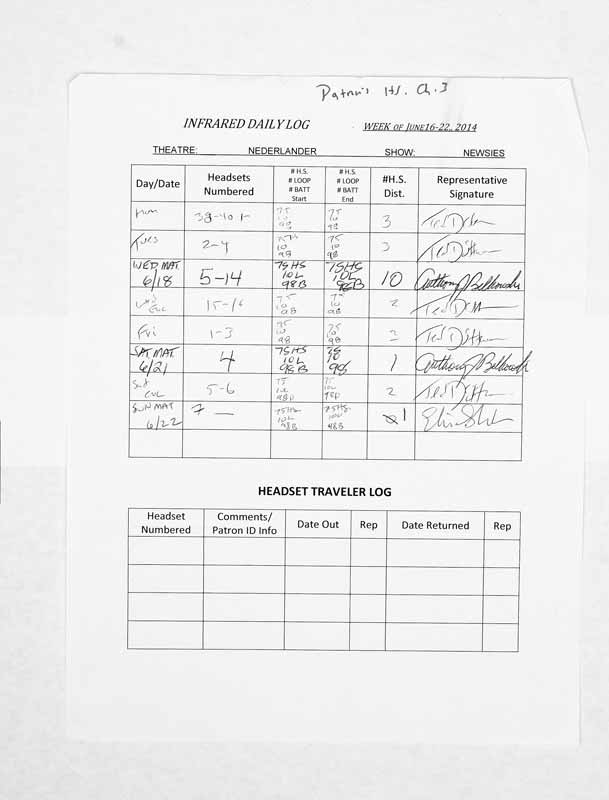 Patron's Hs. Ch. 3
INFRARED DAILY LOG WEEK OF JUNE16-22, 2014
THEATRE: NEDERLANDER SHOW: NEWSIES
Day/Date Headsets Numbered # H.S. # LOOP # BATT Start # H.S. # LOOP # BATT End #H.S. Dist. Representative Signature
38-40 1- 75 10 98 75 10 98 3
Tues 2-4 75 10 98 75 10 98 3
WED MAT 6/18 5-14 75HS 10L 98B 75HS 10L 98B 10 Anthony J Bellomo
Wed Eve 15-16 75 10 98 75 10 98 2
Fri 1-3 75 10 98 75 10 98 3
SAT MAT 6/21 4 75HS 10L 98B 75 10 98 1 Anthony J Bellomo
Sat Eve 5-6 75 10L 98B 75 10 98 2
SUN MAT 6/22 7 — 75HS 10L 98B 75HS 10L 98B 1
HEADSET TRAVELER LOG
Headset Numbered Comments/ Patron ID Info Date Out Rep Date Returned Rep